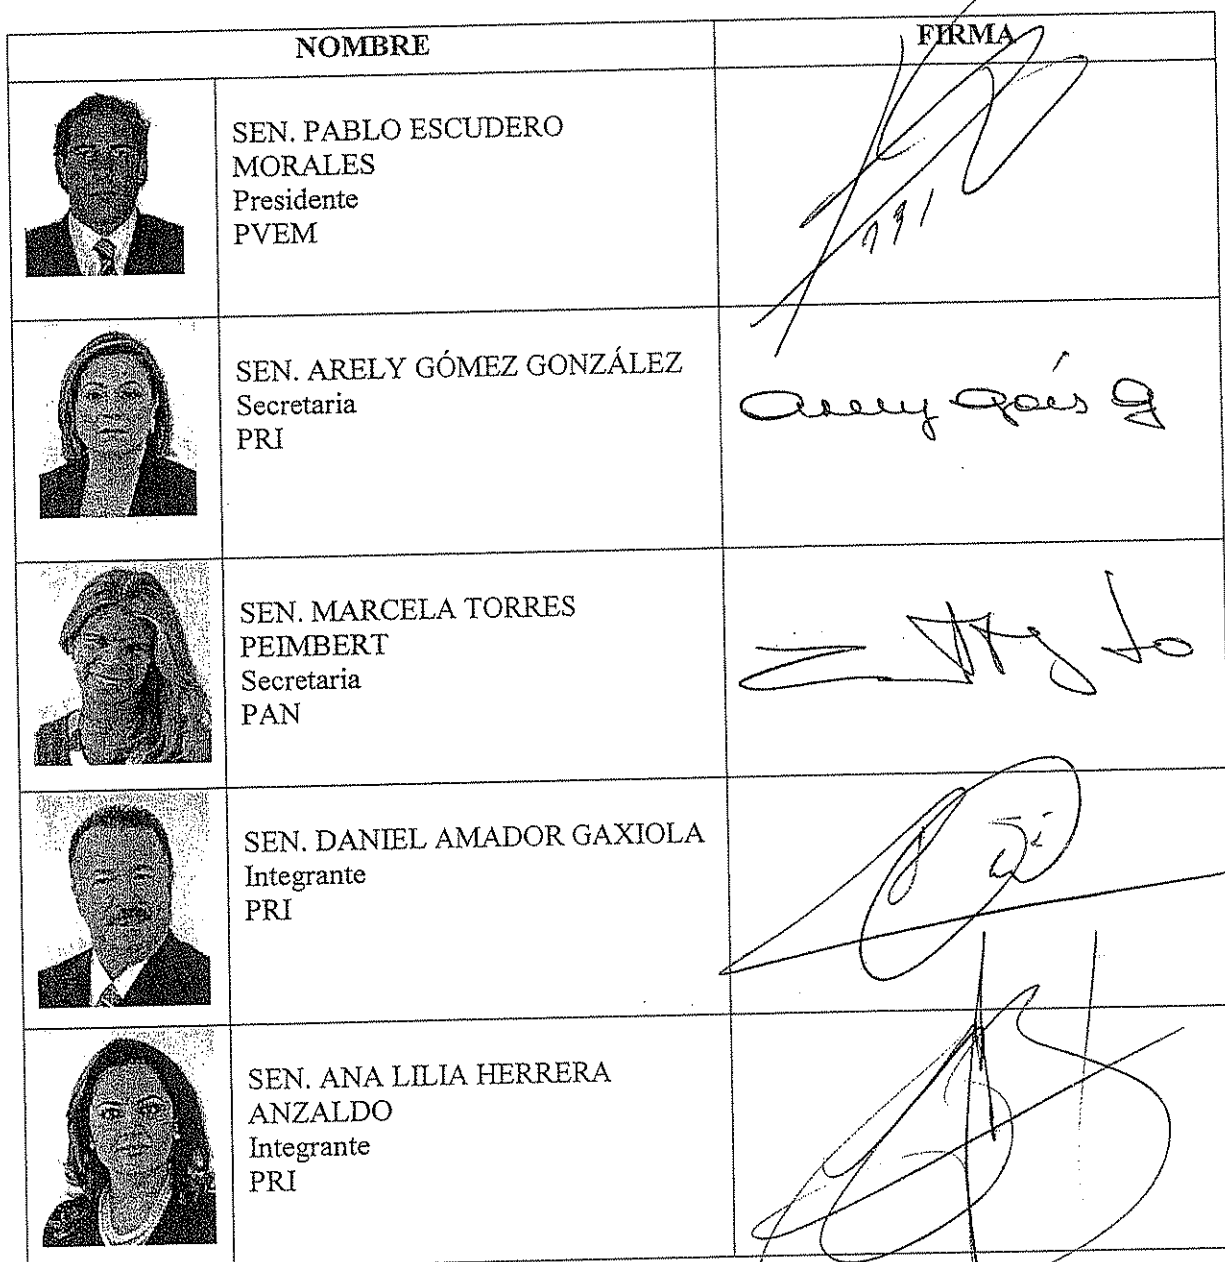 NOMBRE FIRMA
SEN. PABLO ESCUDERO
MORALES
Presidente
PVEM
SEN. ARELY GÓMEZ GONZÁLEZ
Secretaria
PRI
Arely
SEN. MARCELA TORRES
PEIMBERT
Secretaria
PAN
SEN. DANIEL AMADOR GAXIOLA
Integrante
PRI
SEN. ANA LILIA HERRERA
ANZALDO
Integrante
PRI